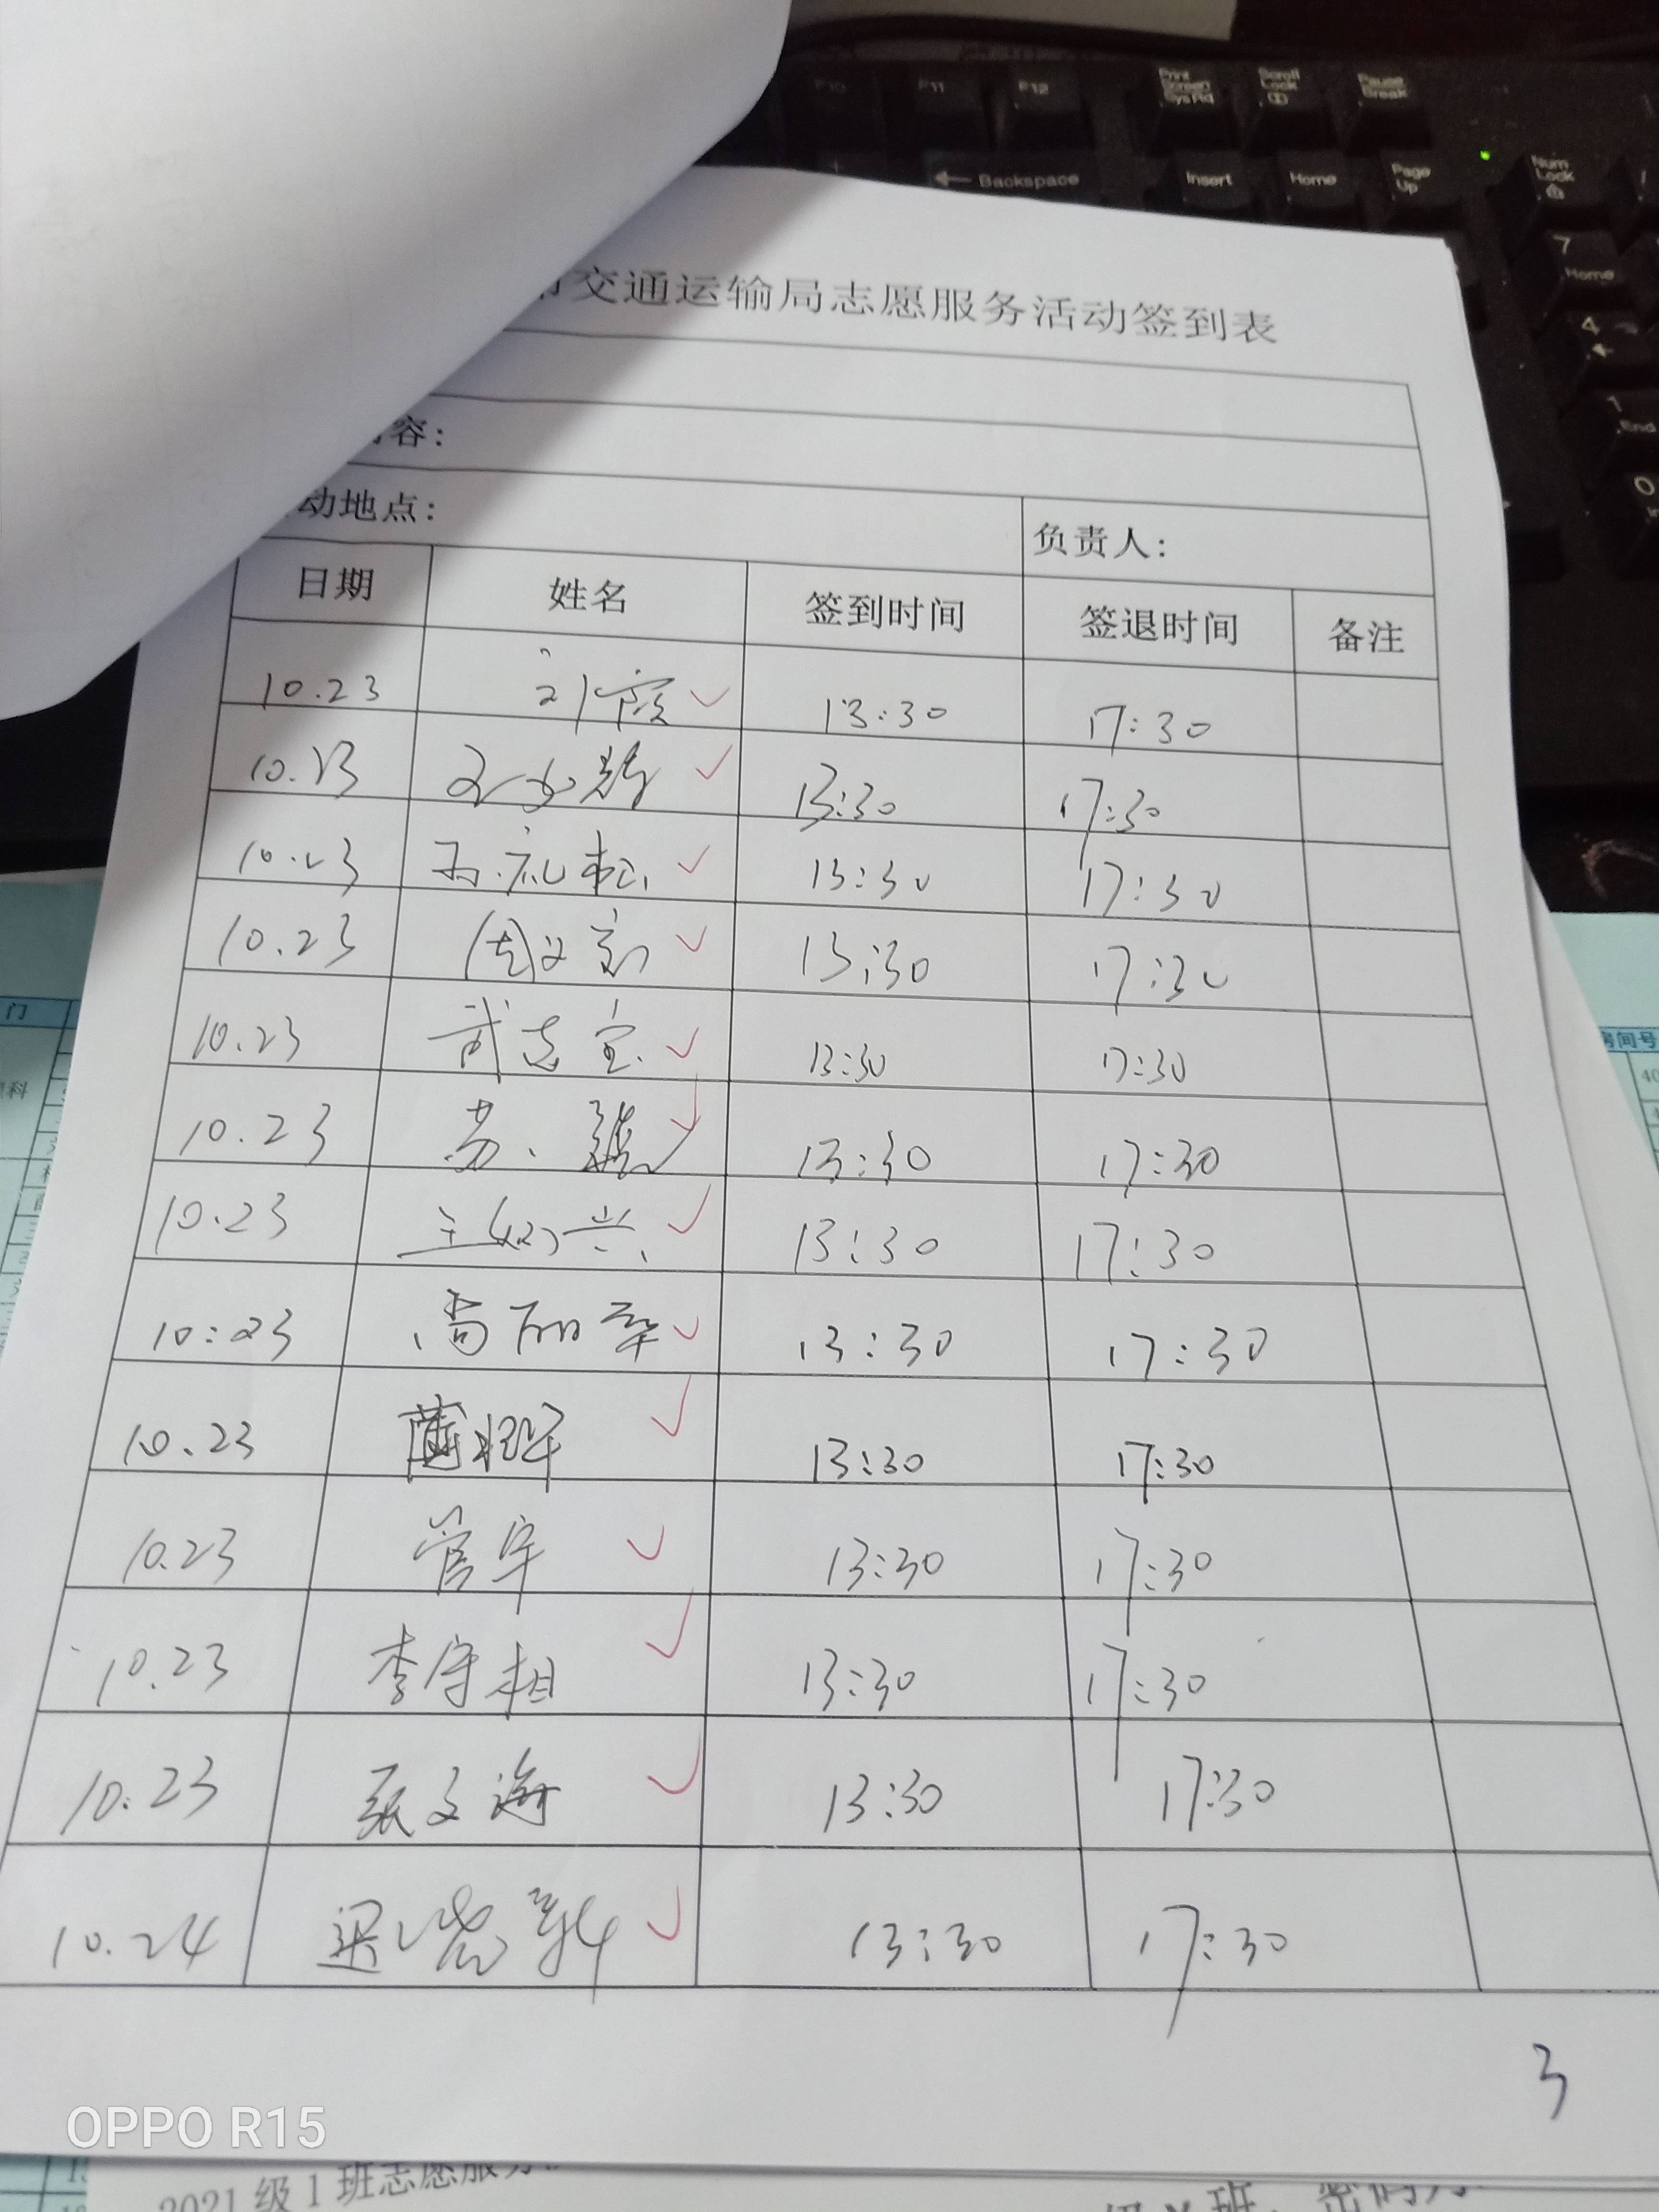 F10 F11 F12 Print Screen SysRq Scroll Lock Pause Break
Backspace Insert Home Page Up Num Lock
7 Home
4
1 End
0
交通运输局志愿服务活动签到表
容:
动地点: 负责人:
日期 姓名 签到时间 签退时间 备注
10.23 刘霞 13:30 17:30
10.23 13:30 17:30
10.23 13:30 17:30
10.23 13:30 17:30
10.23 武志宝 13:30 17:30
10.23 苏 13:30 17:30
10.23 王 兴 13:30 17:30
10:23 尚丽华 13:30 17:30
10.23 13:30 17:30
10.23 管军 13:30 17:30
10.23 李守相 13:30 17:30
10.23 张文海 13:30 17:30
10.24 梁 13:30 17:30
3
门
科
房间号
OPPO R15
2021级1班志愿服务